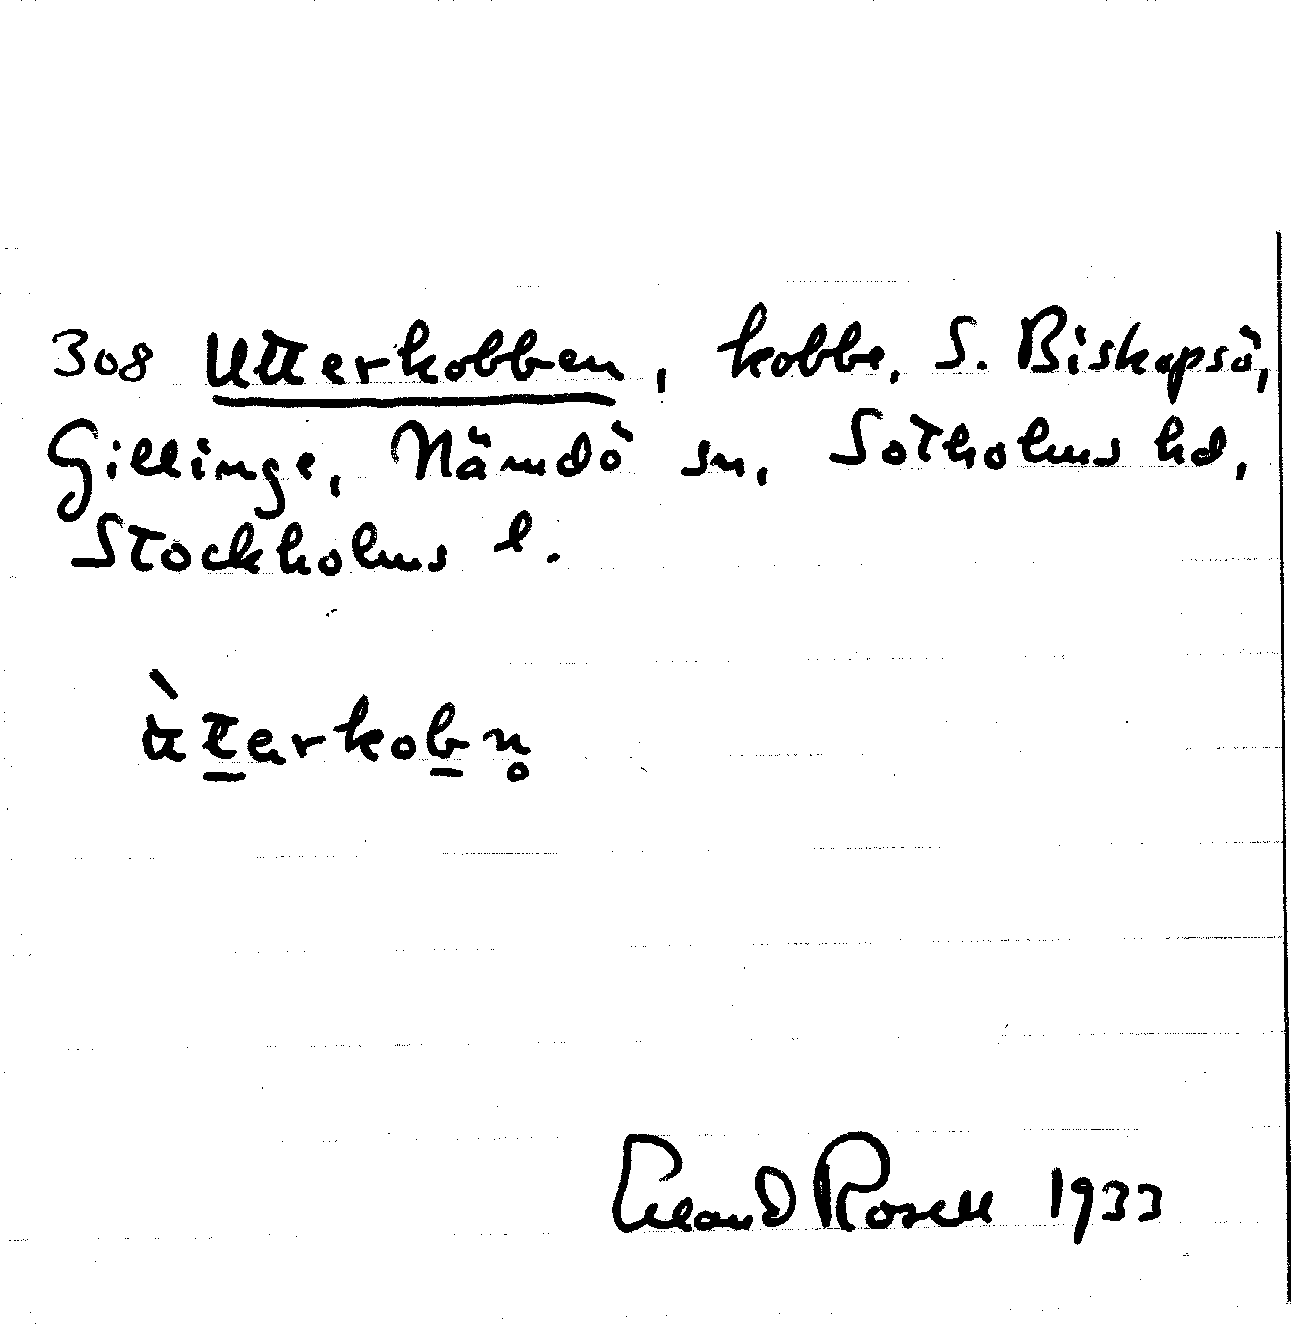 308 Utterkobben, kobbe, S. Biskopsö,
Gillinge, Nämdö sn, Sotholms hd,
Stockholms l.
ùt̲ərkob̲n̥
Erland Rosell 1933